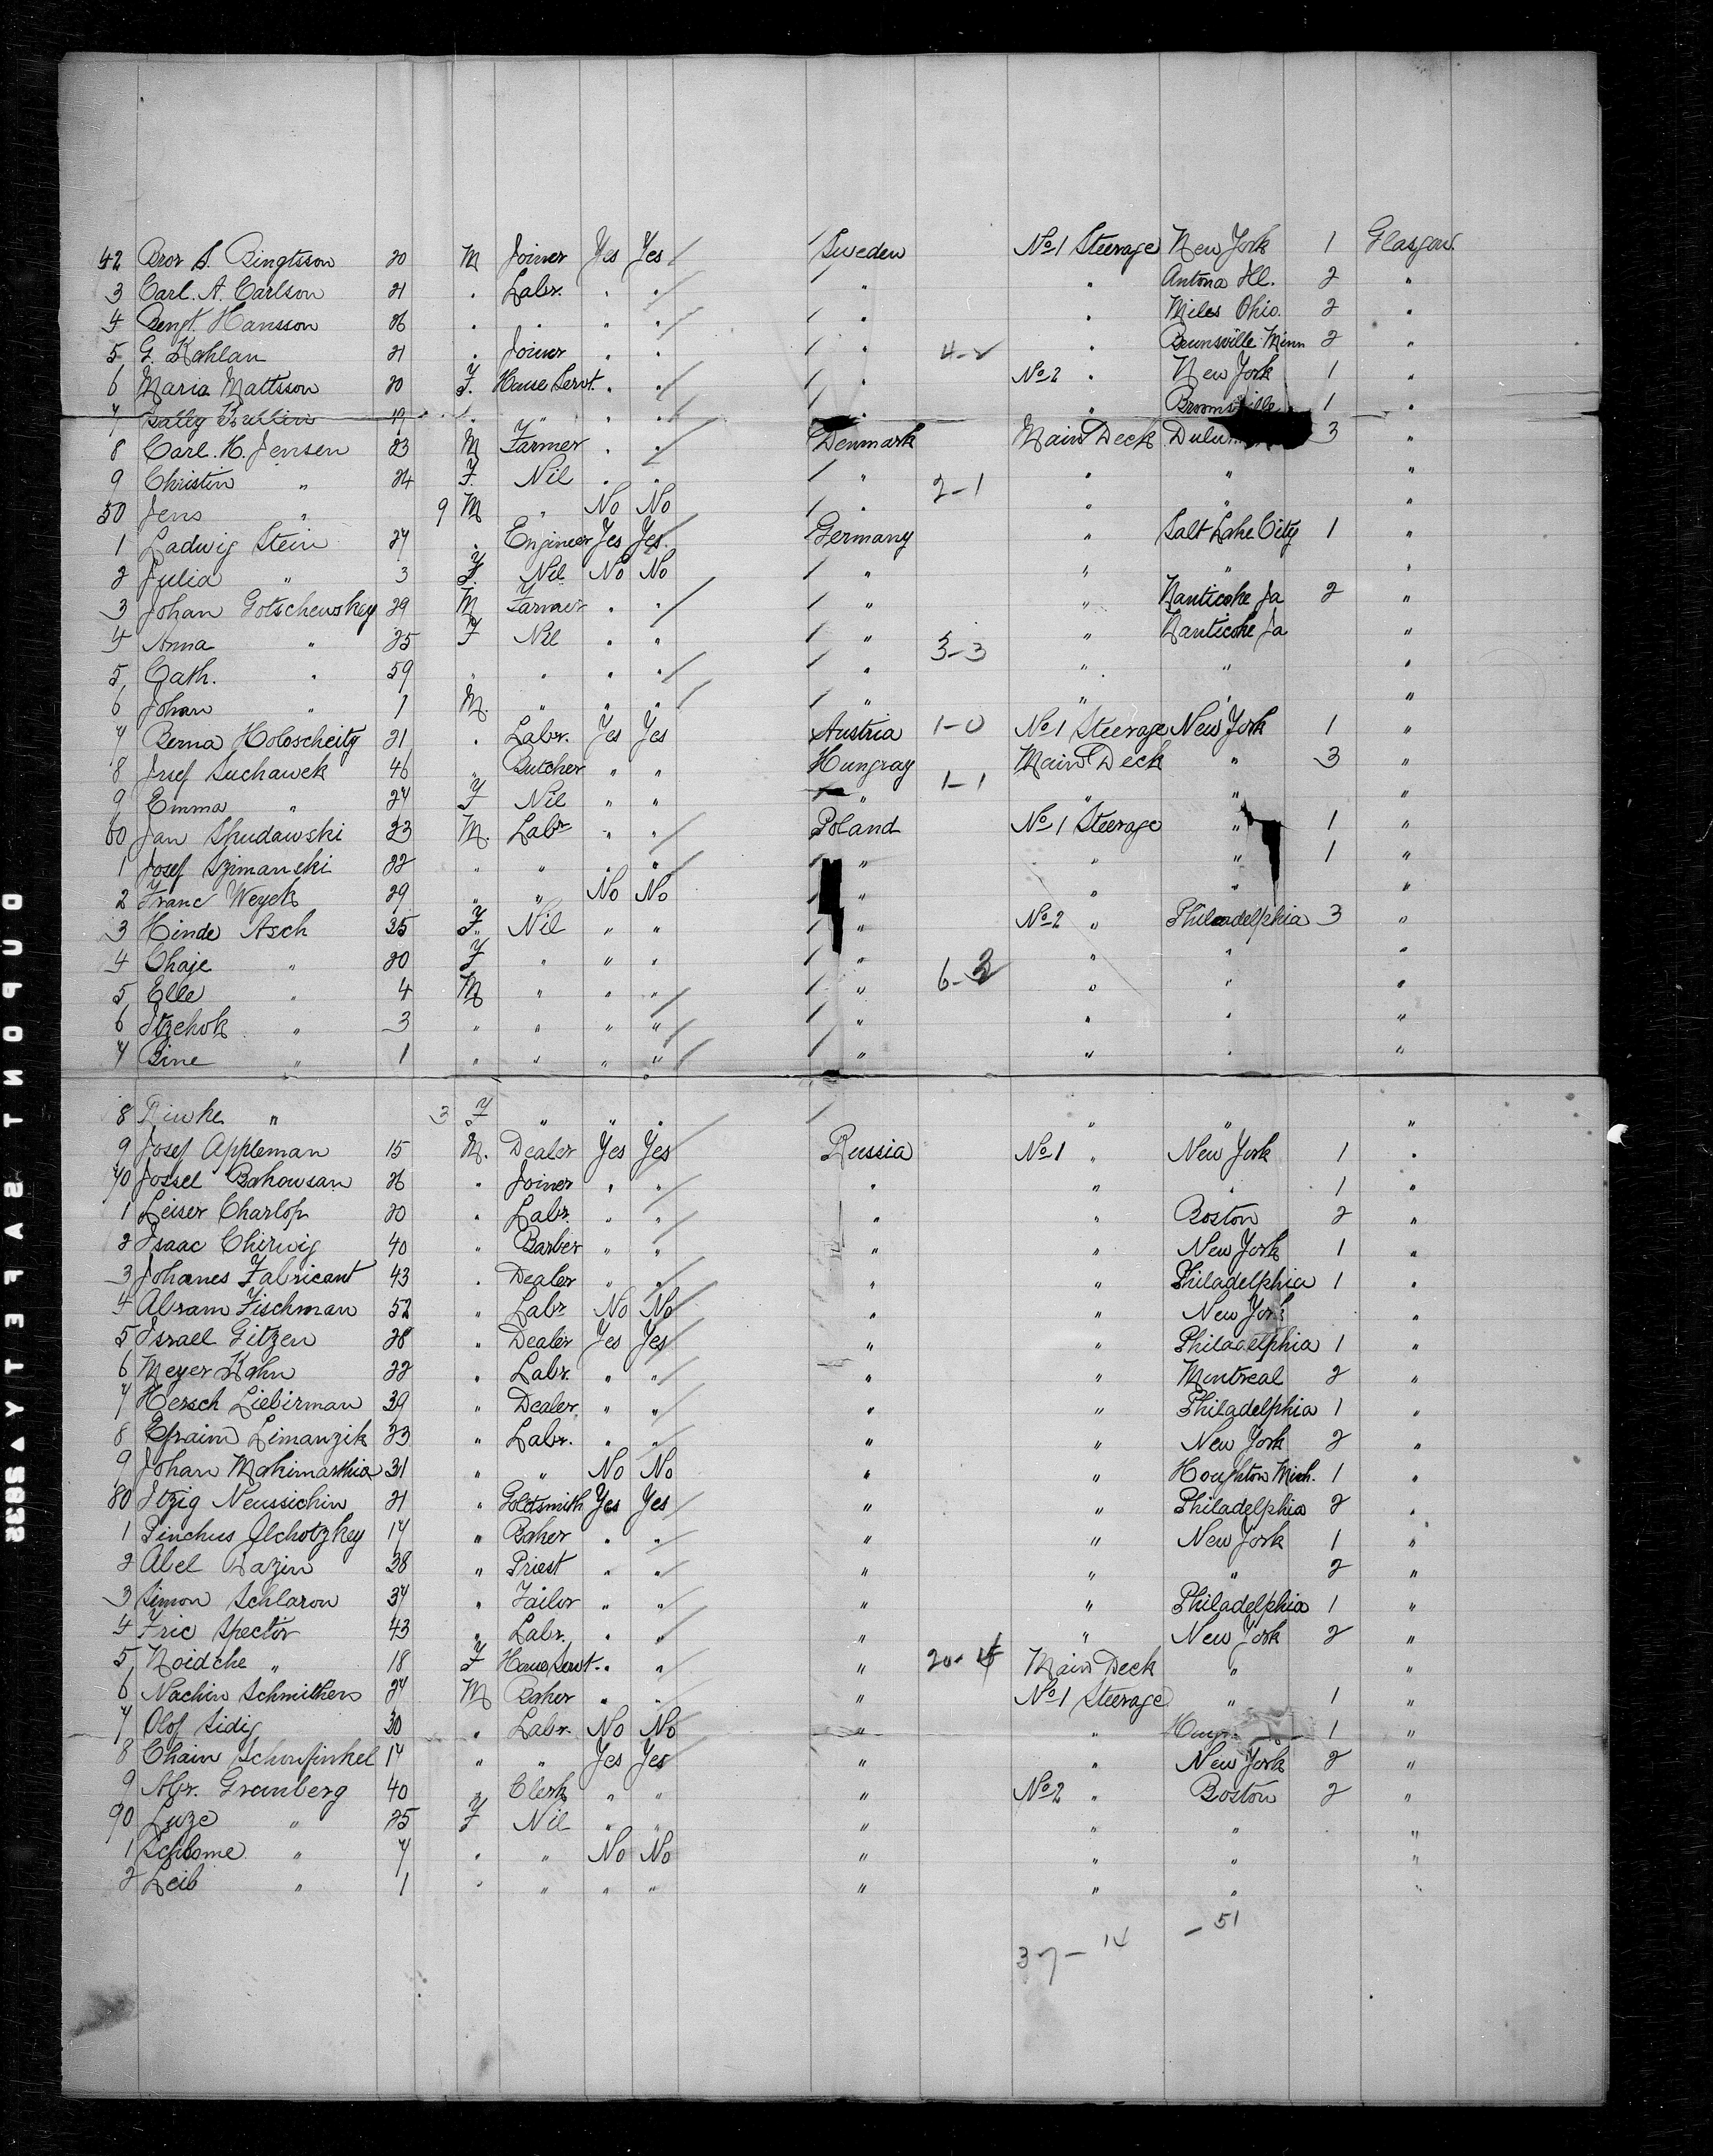 42 Bror S. Bingtsson 20 M Joiner Yes Yes / Sweden No 1 Steerage New York 1 Glasgow
3 Carl. A. Carlson 21 " Labr. " " / " " Antona Ill. 2 "
4 Bengt. Hansson 26 " " " " / " " Miles Ohio. 2 "
5 G. Kahlan 21 " Joiner " " / " 4-2 " Brunsville Minn 2 "
6 Maria Mattsson 20 F. House Servt. " " / " No 2 " New York 1 "
7 Sally 19 " " " " / " " 1 "
8 Carl. H. Jensen 23 M Farmer " " / Denmark Main Deck 3 "
9 Christin " 24 F. Nil " " / " " " "
50 Jens " 9 M " No No / " 2-1 " " "
1 Ladwig Stein 27 " Engineer Yes Yes / Germany " Salt Lake City 1 "
2 Julia " 3 F. Nil No No / " " " "
3 Johan Gotschewskey 29 M Farmer " " / " " Nanticoke Pa 2 "
4 Anna " 25 F Nil " " / " 3-3 " Nanticoke Pa "
5 Cath. " 59 " " " " / " " " "
6 Johan " 1 M. " " " / " " " "
7 Berna Holoscheitz 21 " Labr. Yes Yes Austria 1-0 No 1 Steerage New York 1 "
8 Jsef Suchawek 46 " Butcher " " Hungray Main Deck " 3 "
9 Emma " 27 F Nil " " " 1-1 " " "
60 Jan Skudawski 23 M. Labr " " / Poland No 1 Steerage " 1 "
1 Josef Szimanski 22 " " " " / " " " 1 "
2 Franc Weyek 29 " " No No / " " " "
3 Hinde Asch 35 F. Nil " " / " No 2 " Philadelphia 3 "
4 Chaje " 20 F " " " / " " " "
5 Elle " 4 M " " " / " 6-3 " " "
6 Itzchok " 3 " " " " / " " " "
7 Bine " 1 " " " " / " " " "
8 Riwke " 3 F " " " / " " "
9 Josef Appleman 15 M. Dealer Yes Yes Russia No 1 " New York 1 "
70 Jossel Bahowsan 26 " Joiner " " / " " " 1 "
1 Leiser Charlop 20 " Labr. " " / " " Boston 2 "
2 Isaac Chirwig 40 " Barber " " / " " New York 1 "
3 Johanes Fabricant 43 " Dealer " " / " " Philadelphia 1 "
4 Abram Fischman 52 " Labr No No / " " New York "
5 Israel Gitzen 28 " Dealer Yes Yes / " " Philadelphia 1 "
6 Meyer Kahn 22 " Labr. " " / " " Montreal 2 "
7 Hersch Lieberman 39 " Dealer. " " / " " Philadelphia 1 "
8 Efraim Limanzik 23 " Labr. " " / " " New York 2 "
9 Johan Mahimathia 31 " " No No " " Houghton Mich. 1 "
80 Itzig Neussichin 21 " Goldsmith Yes Yes / " " Philadelphia 2 "
1 Pinchus Olchotzkey 17 " Baker " " / " " New York 1 "
2 Abel Razin 38 " Priest " " / " " " 2 "
3 Simon Schlaron 37 " Tailor " " / " " Philadelphia 1 "
4 Fric Spector 43 " Labr. " " / " " New York 2 "
5 Noidche " 18 F House Servt. " " / " 20- Main Deck " "
6 Nachin Schmilken 27 M Baker " " / " No 1 Steerage " 1 "
7 Olof Sidig 30 " Labr. No No / " " 1 "
8 Chain Schonfinkel 17 " " Yes Yes " " New York 2 "
9 Abr. Granberg 40 " Clerk " " " No 2 " Boston 2 "
90 Luze " 25 F Nil " " " " " "
1 Schlome " 7 " " No No " " " "
2 Leib " 1 " " " " " " " "
37-14 -51
DUPONT SAFETY